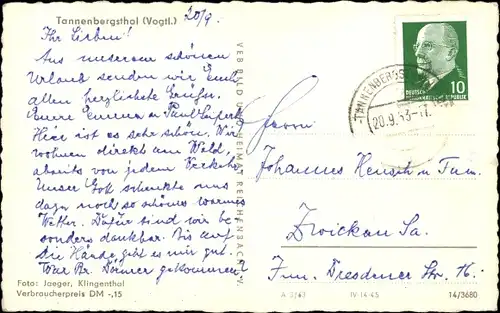 Tannenbergsthal (Vogtl.)
20/9.
Ihr Lieben!
Aus unserem schönen
Urlaub senden wir Euch
allen herzlichste Grüße.
Eure Emma u. Paul
Hier ist es sehr schön. Wir
wohnen direkt am Wald,
abseits von jedem Verkehr.
Unser Gott schenkte uns
dazu noch so schönes warmes
Wetter. Dafür sind wir be-
sonders dankbar. Bis auf
die Hände geht es mir gut.
War Br. gekommen?
Foto: Jaeger, Klingenthal
Verbraucherpreis DM -,15
VEB BILD UND HEIMAT REICHENBACH i. V.
TANNENBERGS
20.9.63
DEUTSCHE
DEMOKRATISCHE REPUBLIK
10
Herrn
Johannes u. Fam.
Zwickau Sa.
Dresdener Str. 16.
A 2/63 IV-14-45 14/3680